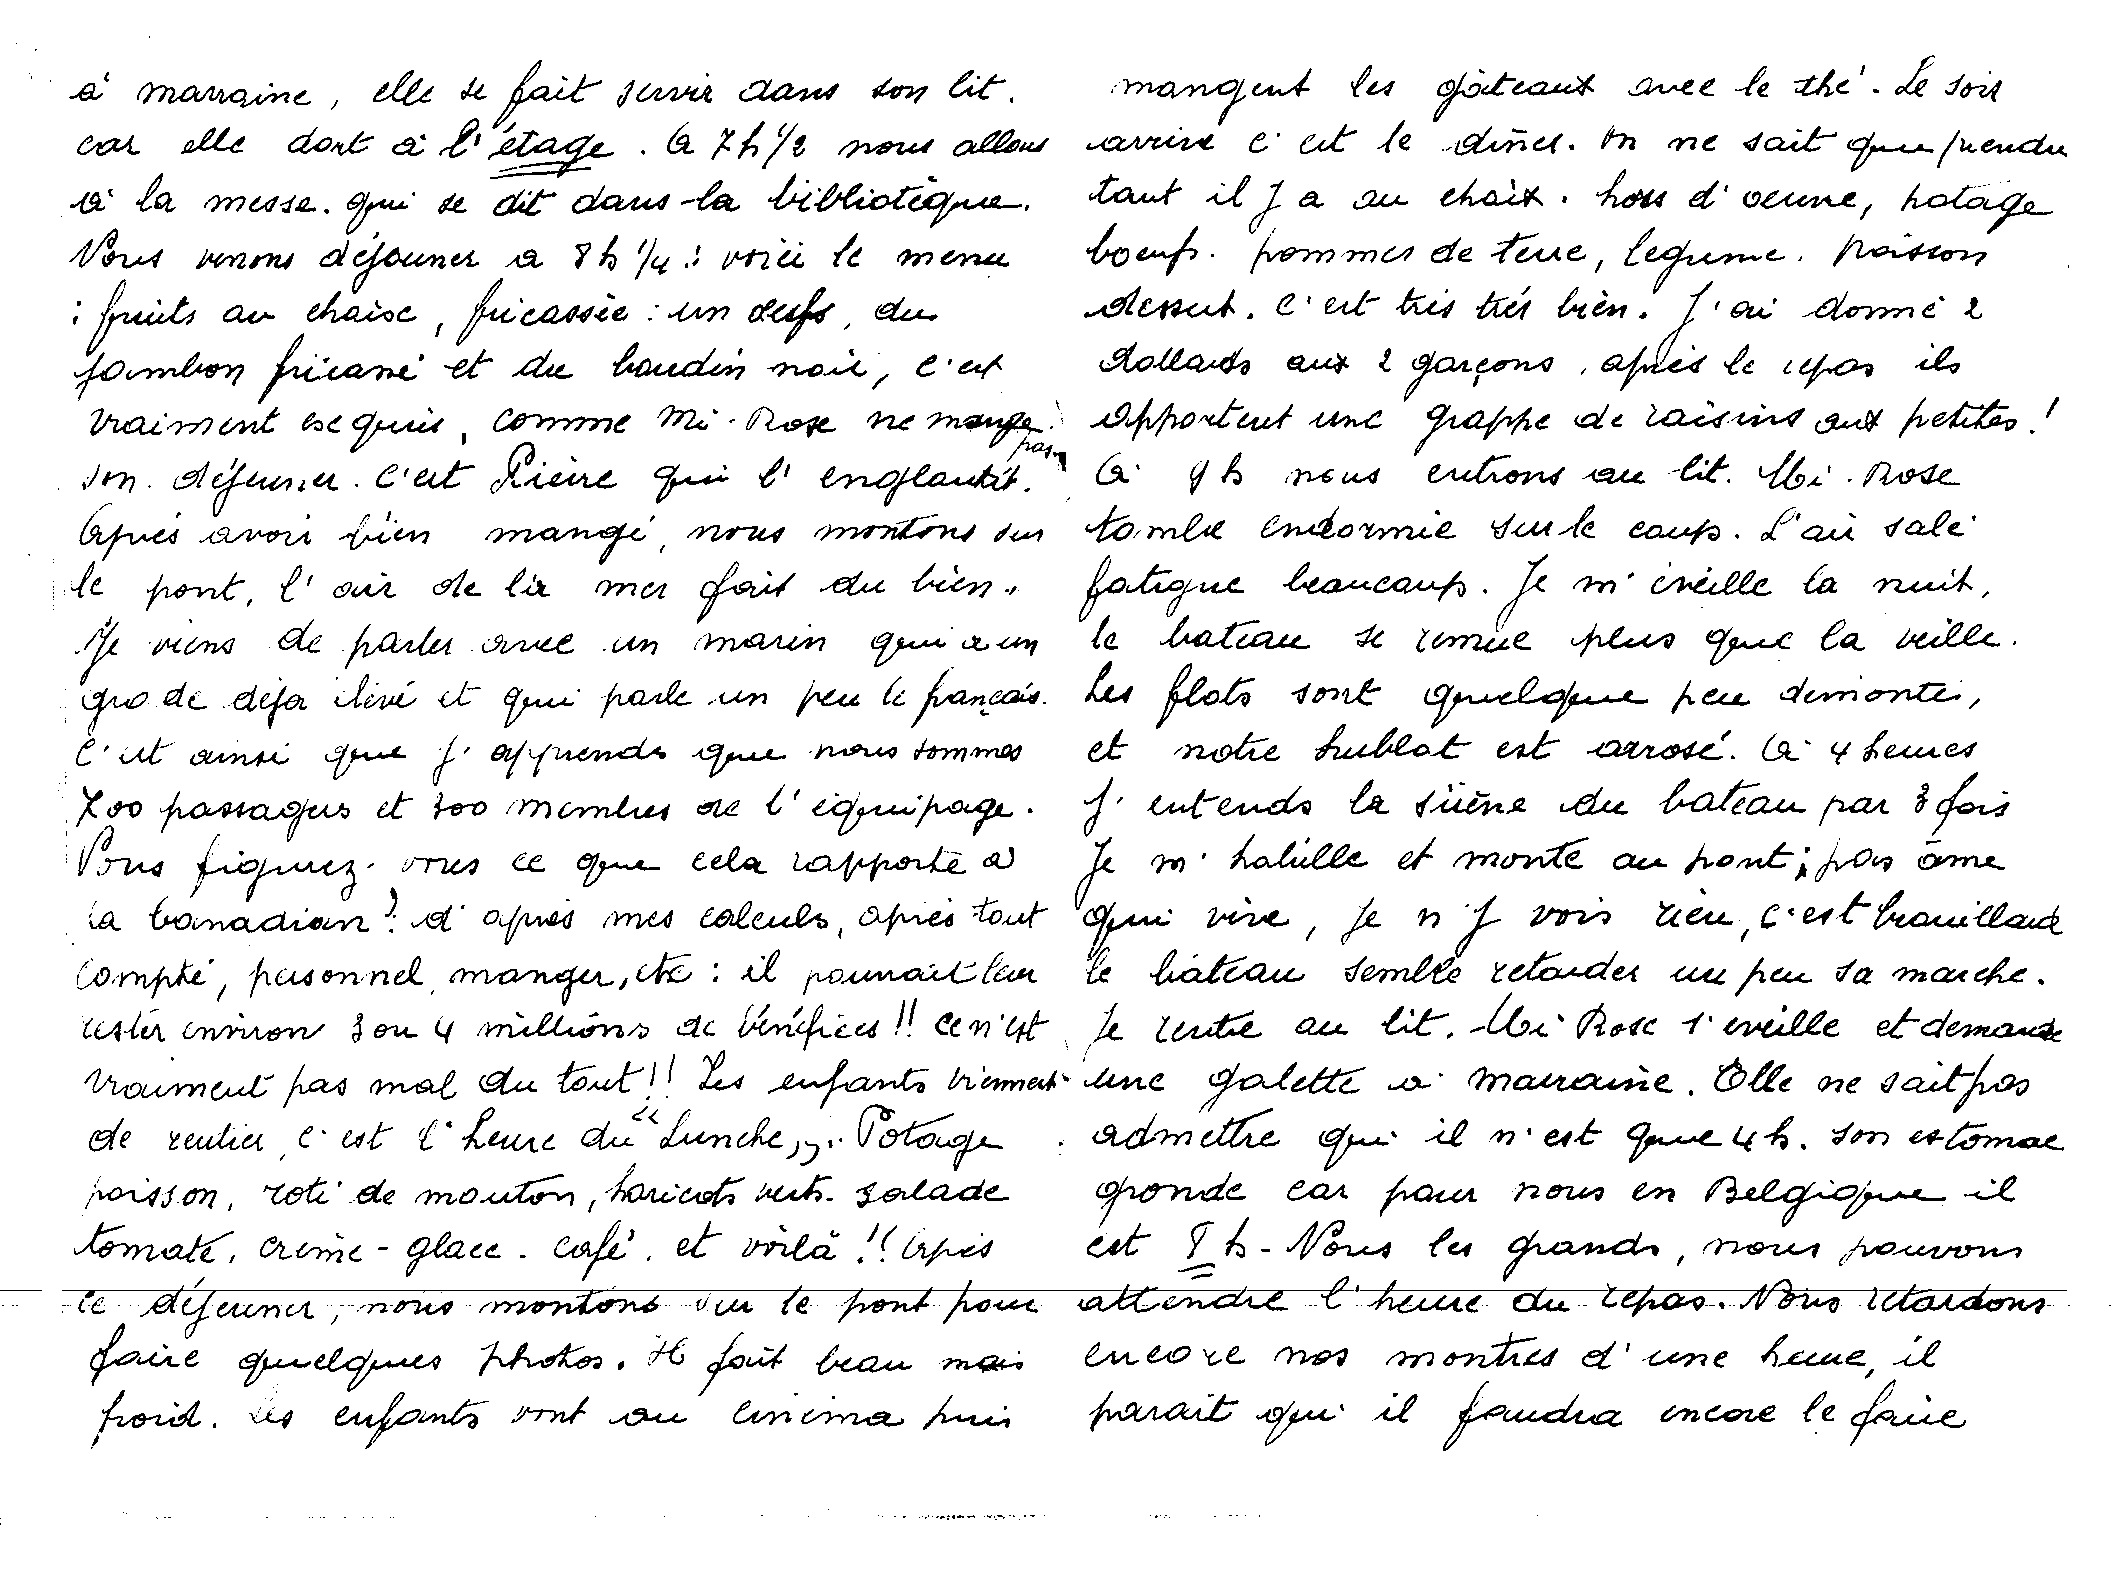 à marraine, elle se fait servir dans son lit.
car elle dort à l'étage. A 7 h 1/2 nous allons
à la messe. qui se dit dans la bibliotèque.
Nous venons déjeuner a 8 h 1/4 : voici le menu
: fruits au choise, fricassée : un oeufs, du
jambon fricassé et du boudin noir, c'est
vraiment exequis, comme Mi-Rose ne mange pas
son déjeuner. C'est Pierre qui l'engloutit.
Après avoir bien mangé, nous montons sur
le pont, l'air de la mer fait du bien.
Je viens de parler avec un marin qui a un
grade déja élevé et qui parle un peu le français.
C'est ainsi que j'apprends que nous sommes
700 passagers et 300 membres de l'équipage.
Vous figurez-vous ce que cela rapporte à
la Canadian ? d'après mes calculs, après tout
compté, personnel, manger, etc : il pourrait leur
rester environ 3 ou 4 millions de bénéfices !! Ce n'est
vraiment pas mal du tout !! Les enfants viennent
de rentier, c'est l'heure du "Lunche". Potage
poisson, roti de mouton, haricots verts. salade
tomate, crème-glace. café. et voilà !! Après
le déjeuner, nous montons sur le pont pour
faire quelques photos. Il fait beau mais
froid. Les enfants vont au cinéma puis
mangent les gâteaux avec le thé. Le soir
arrive c'est le diner. On ne sait que prendre
tant il y a au choix. hors d'oeuvre, potage
boeuf. pommes de terre, legume. poisson
dessert. C'est très très bien. J'ai donné 2
dollards aux 2 garçons, après le repas ils
apportent une grappe de raisins aux petites !
A 9 h nous entrons au lit. Mi-Rose
tombe endormie sur le coup. L'air salé
fatigue beaucoup. Je m'éveille la nuit,
le bateau se remue plus que la veille.
Les flots sont quelque peu démontés,
et notre hublot est arrosé. A 4 heures
j'entends la sirène du bateau par 3 fois
Je m'habille et monte au pont ; pas âme
qui vive, je n'y vois rien, c'est brouillard
le bateau semble retarder un peu sa marche.
Je rentre au lit. Mi Rose s'eveille et demande
une galette a marraine. Elle ne sait pas
admettre qu'il n'est que 4 h. son estomac
gronde car pour nous en Belgique il
est 8 h - Nous les grands, nous pouvons
attendre l'heure du repas. Nous retardons
encore nos montres d'une heure, il
parait qu'il faudra encore le faire